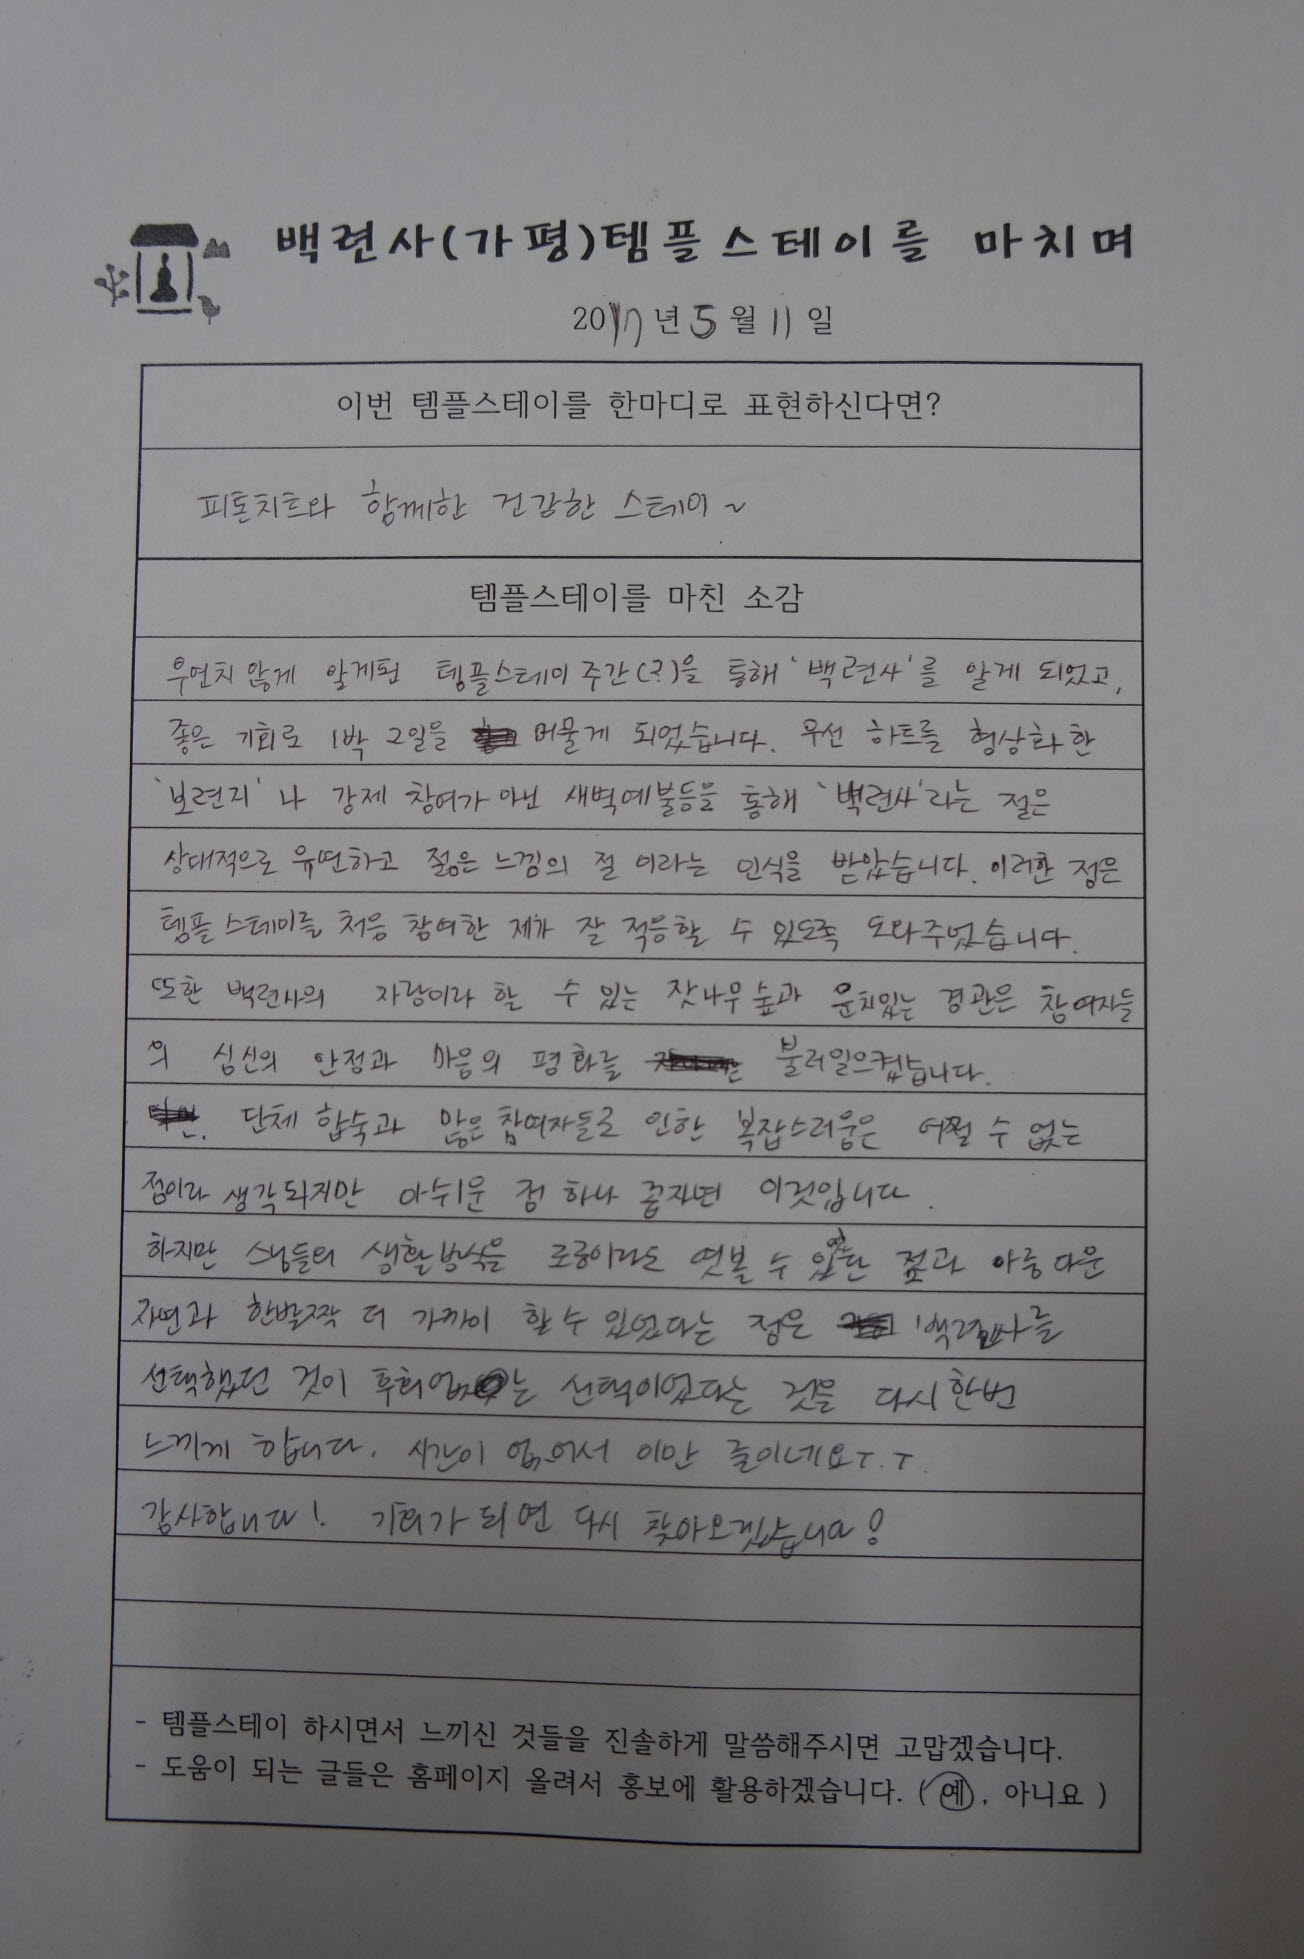 백련사(가평)템플스테이를 마치며
2017년 5월 11일
이번 템플스테이를 한마디로 표현하신다면?
피톤치트와 함께한 건강한 스테이~
템플스테이를 마친 소감
우연치 않게 알게된 템플스테이 주간(?)을 통해 '백련사'를 알게 되었고,
좋은 기회로 1박 2일을 머물게 되었습니다. 우선 하트를 형상화 한
'보련지'나 강제 참여가 아닌 새벽예불등을 통해 '백련사'라는 절은
상대적으로 유연하고 젊은 느낌의 절 이라는 인식을 받았습니다. 이러한 점은
템플스테이를 처음 참여한 제가 잘 적응할 수 있도록 도와주었습니다.
또한 백련사의 자랑이라 할 수 있는 잣나무숲과 운치있는 경관은 참여자들
의 심신의 안정과 마음의 평화를 불러일으켰습니다.
단체 합숙과 많은 참여자들로 인한 복잡스러움은 어쩔 수 없는
점이라 생각되지만 아쉬운 점 하나 꼽자면 이것입니다.
하지만 스님들의 생활방식을 조금이라도 엿볼 수 있었단 점과 아름다운
자연과 한발짝 더 가까이 할 수 있었다는 점은 '백련사를
선택했던 것이 후회없는 선택이었다는 것을 다시한번
느끼게 합니다. 시간이 없어서 이만 줄이네요ㅜ.ㅜ.
감사합니다! 기회가 되면 다시 찾아오겠습니다!
- 템플스테이 하시면서 느끼신 것들을 진솔하게 말씀해주시면 고맙겠습니다.
- 도움이 되는 글들은 홈페이지 올려서 홍보에 활용하겠습니다. ( 예, 아니요 )